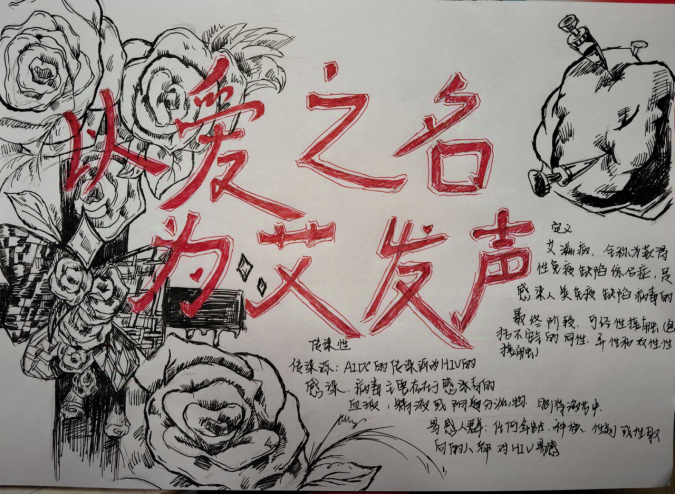 以爱之名
为艾发声
定义
艾滋病,全称为获得
性免疫缺陷综合症,是
感染人类免疫缺陷病毒的
最终阶段,可经性接触(包
括不安全的同性、异性和双性性
接触)
传染性
传染源:AIDS的传染源为HIV的
感染,病毒主要存在于感染者的
血液,精液或阴道分泌物
易感人群:任何年龄、种族、性别或性取
向的人都对HIV易感